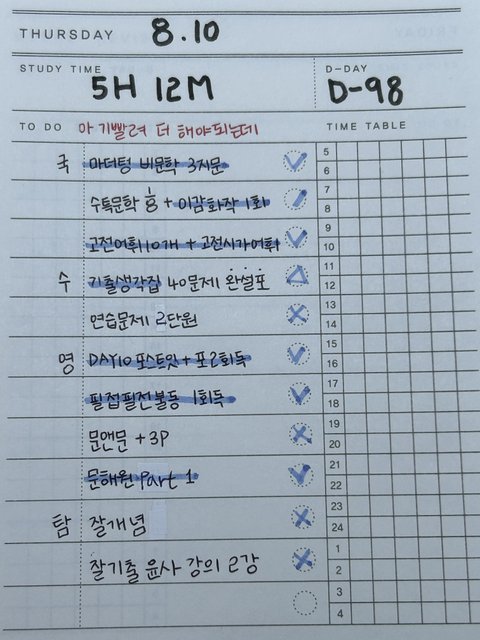 THURSDAY 8.10
STUDY TIME
5H 12M
D-DAY
D-98
TO DO 아 기빨려 더 해야되는데
TIME TABLE
국 마더텅 비문학 3지문
수특문학 + 이감화작 1회
고전어휘10개 + 고전시가어휘
수 기출생각집 40문제 완설포
연습문제 2단원
영 DAY10 포스트잇 + 포2회독
필접필전불동 1회독
문앤문 + 3P
문해원 Part 1
탐 잘개념
잘기출 윤사 강의 2강
5
6
7
8
9
10
11
12
13
14
15
16
17
18
19
20
21
22
23
24
1
2
3
4